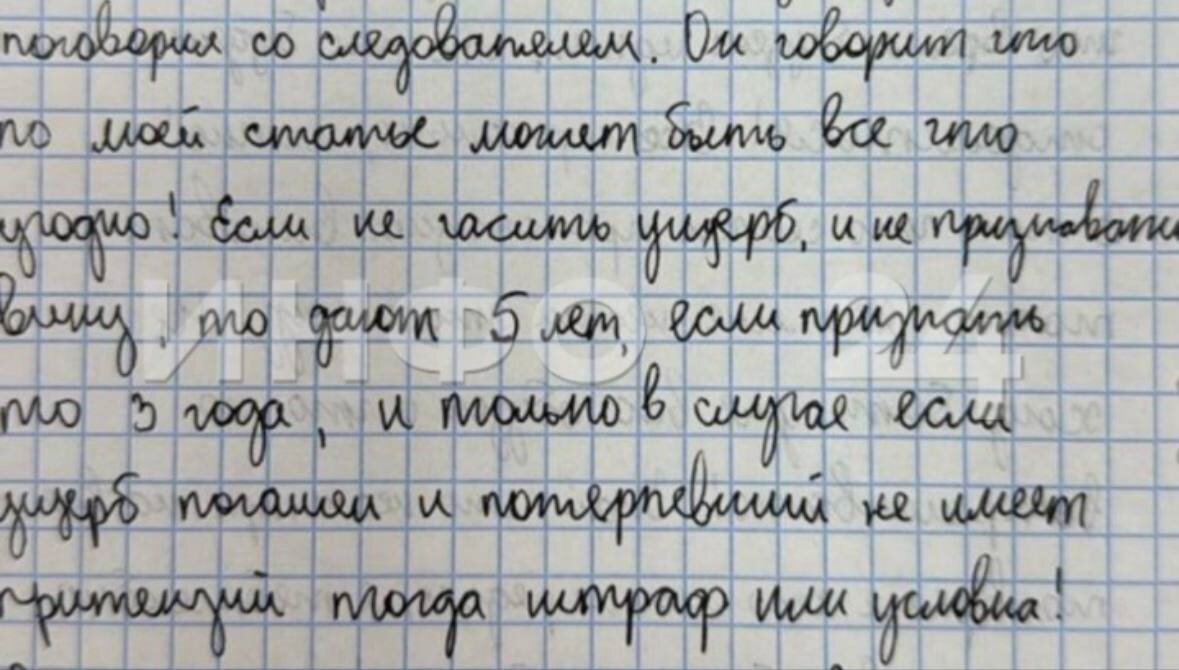 поговорил со следователем. Он говорит что
по моей статье может быть все что
угодно! Если не гасить ущерб, и не признавать
вину, то дают 5 лет, если признать
ИНФО 24
то 3 года, и только в случае если
ущерб погашен и потерпевший не имеет
притензий тогда штраф или условка!